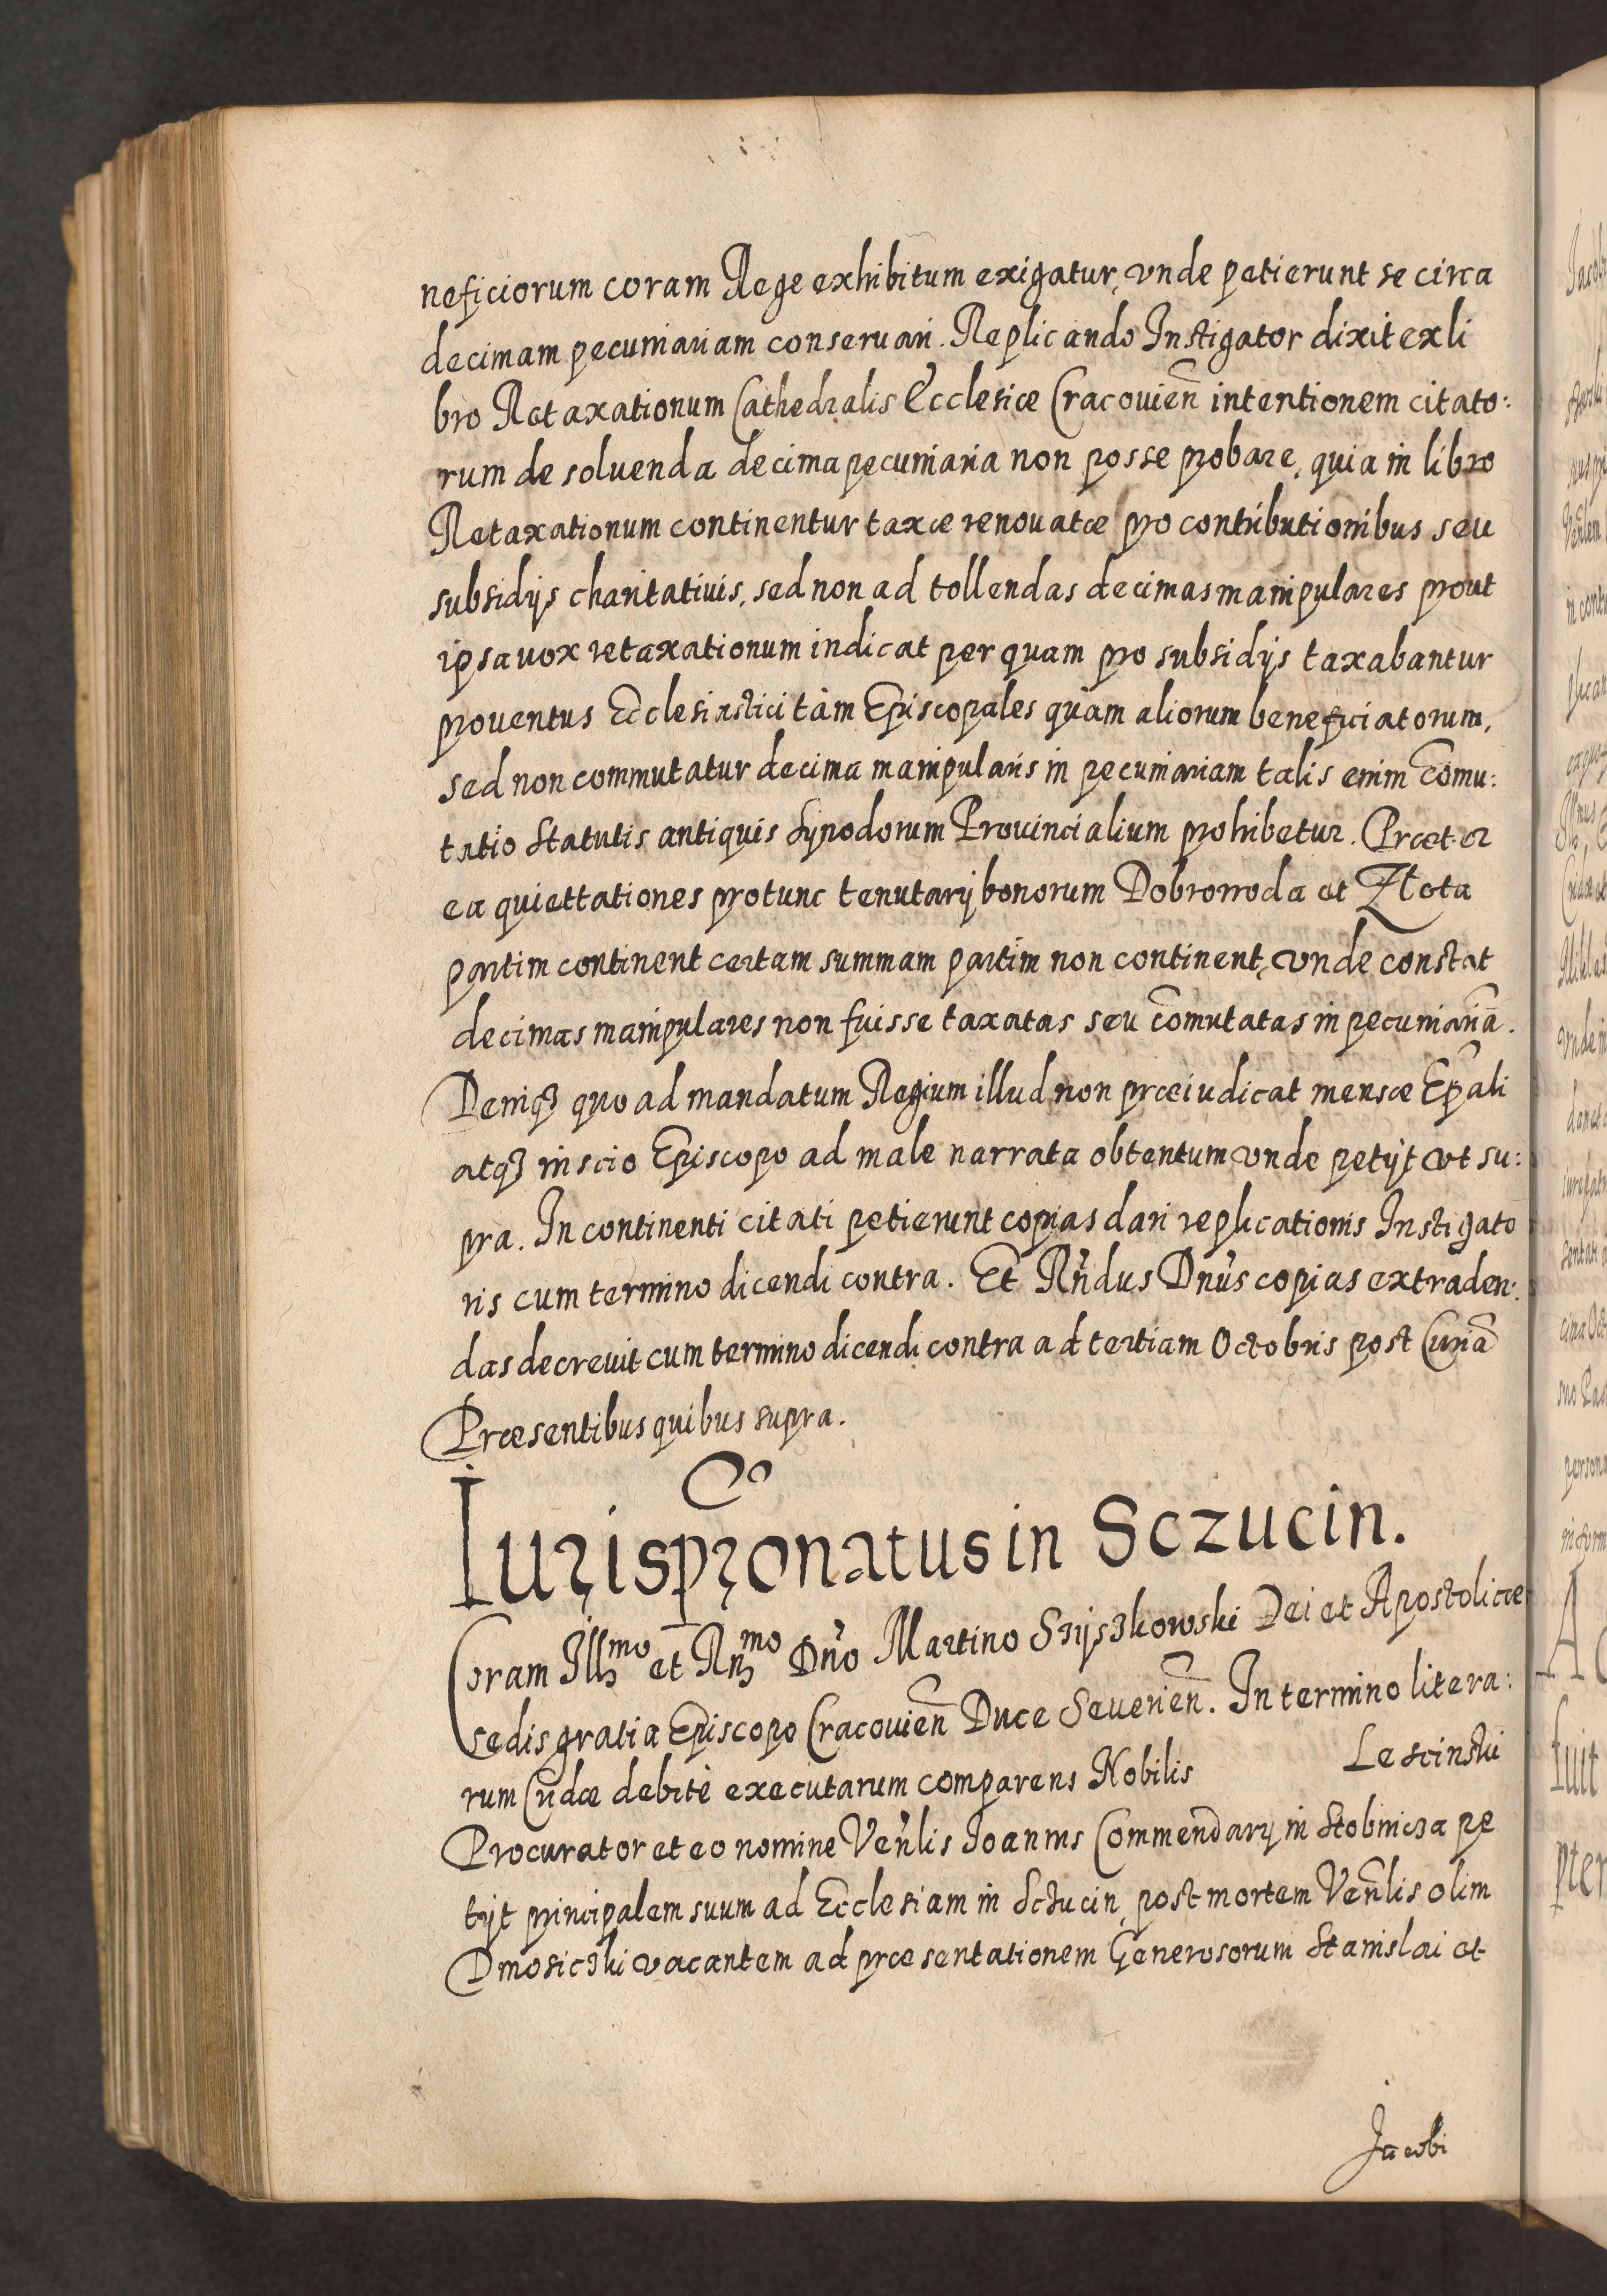 neficiorum coram Rege exhibitum exigatur, vnde petierunt se circa
decimam pecuniariam conseruari. Replicando Instigator dixit ex li
bro Retaxationum Cathedralis Ecclesiæ Cracouien̄ intentionem citato:
rum de soluenda decima pecuniaria non posse probare, quia in libro
Retaxationum continentur taxæ renouatæ pro contributionibus seu
subsidijs charitatiuis, sed non ad tollendas decimas manipulares prout
ipsa uox retaxationum indicat per quam pro subsidijs taxabantur
prouentus Ecclesiastici tàm Episcopales quàm aliorum beneficiatorum,
sed non commutatur decima manipularis in pecuniariam talis enim com̄u:
tatio statutis antiquis synodorum Prouincialium prohibetur. Præter
ea quiettationes protunc tenutarij bonorum Dobrowoda et Złota
partim continent certam summam partim non continent, vnde constat
decimas manipulares non fuisse taxatas seu com̄utatas in pecuniariā.
Deniqꝫ quo ad mandatum Regium illud non præiudicat mensæ Ep̄ali
atqꝫ inscio Episcopo ad male narrata obtentum vnde petijt vt su:
pra. In continenti citati petierunt copias dari replicationis Instigato
ris cum termino dicendi contra. Et Rn̄dus Dn̄us copias extraden:
das decreuit cum termino dicendi contra ad tertiam Octobris post Curiā
Præsentibus quibus supra.
Co
Iurispr̄onatus in Sczucin.
Coram Illꝫmo et Rnꝫmo Dn̄o Martino Szyszkowski Dei et Apostolicæ
sedis gratia Episcopo Cracouien̄ Duce Seuerien̄. In termino litera:
rum Cridæ debitè executarum comparens Nobilis Lescinski
Procurator et eo nomine Ven̄lis Joannis Commendarij in Stobnicza pe
tijt principalem suum ad Ecclesiam in Sczucin, post mortem Ven̄lis olim
Dmosiczki vacantem ad præsentationem Generosorum Stanislai et
Jacobi